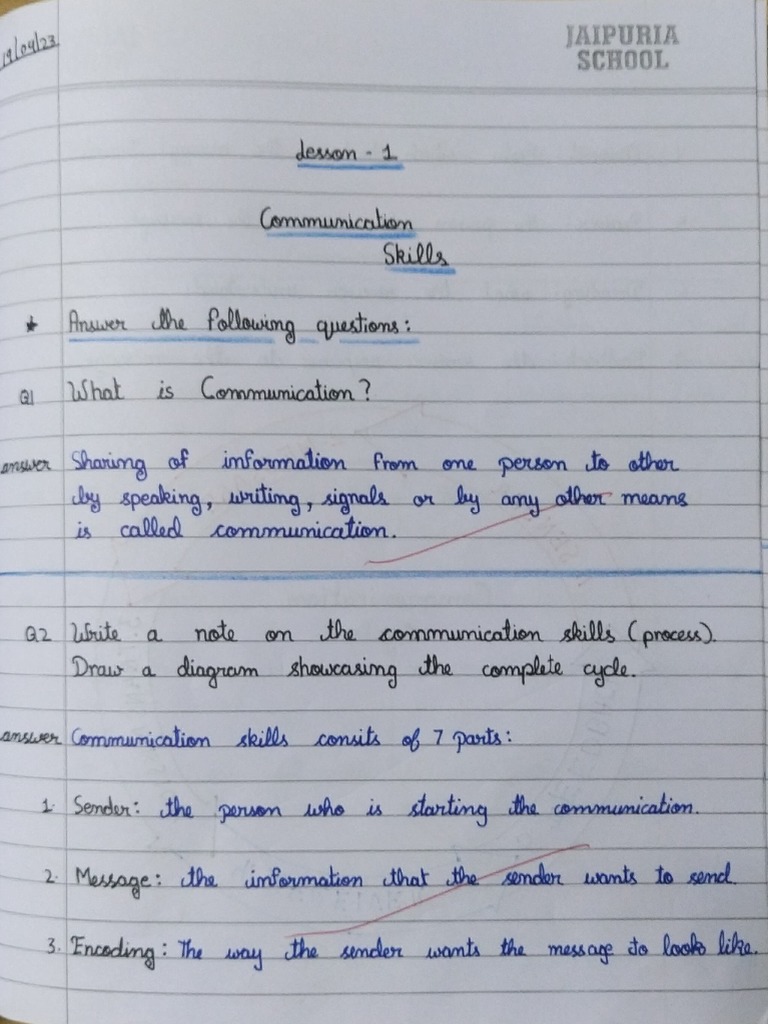 19/04/23
JAIPURIA
SCHOOL
Lesson - 1
Communication
Skills
★ Answer the following questions:
Q1 What is Communication?
answer Sharing of information from one person to other
by speaking, writing, signals or by any other means
is called communication.
Q2 Write a note on the communication skills (process).
Draw a diagram showcasing the complete cycle.
answer Communication skills consits of 7 parts:
1. Sender: the person who is starting the communication.
2. Message: the information that the sender wants to send.
3. Encoding: The way the sender wants the message to look like.